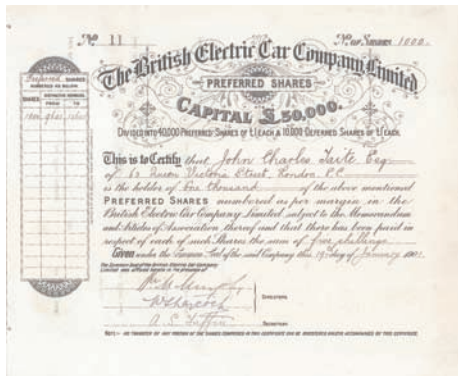 No. 11
No. of Shares 1000.
The British Electric Car Company, Limited
PREFERRED SHARES
CAPITAL £50,000.
DIVIDED INTO 40,000 PREFERRED SHARES OF £1 EACH & 10,000 DEFERRED SHARES OF £1 EACH.
Preferred SHARES
NUMBERED AS BELOW.
SHARES
FROM TO
This is to Certify that John Charles Taite Esq
of 63 Queen Victoria Street, London E.C.
is the holder of One thousand of the above mentioned
PREFERRED SHARES numbered as per margin in the
British Electric Car Company Limited subject to the Memorandum
and Articles of Association thereof and that there has been paid in
respect of each of such Shares the sum of five shillings
Given under the Common Seal of the said Company this day of January
DIRECTORS.
SECRETARY.
NOTE:- NO TRANSFER OF ANY PORTION OF THE SHARES COMPRISED IN THIS CERTIFICATE CAN BE REGISTERED UNLESS ACCOMPANIED BY THIS CERTIFICATE.